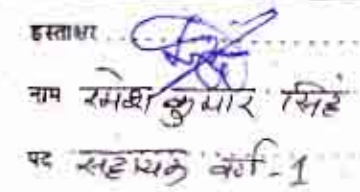 हस्ताक्षर
नाम रमेश कुमार सिंह
पद सहायक वर्ग-1